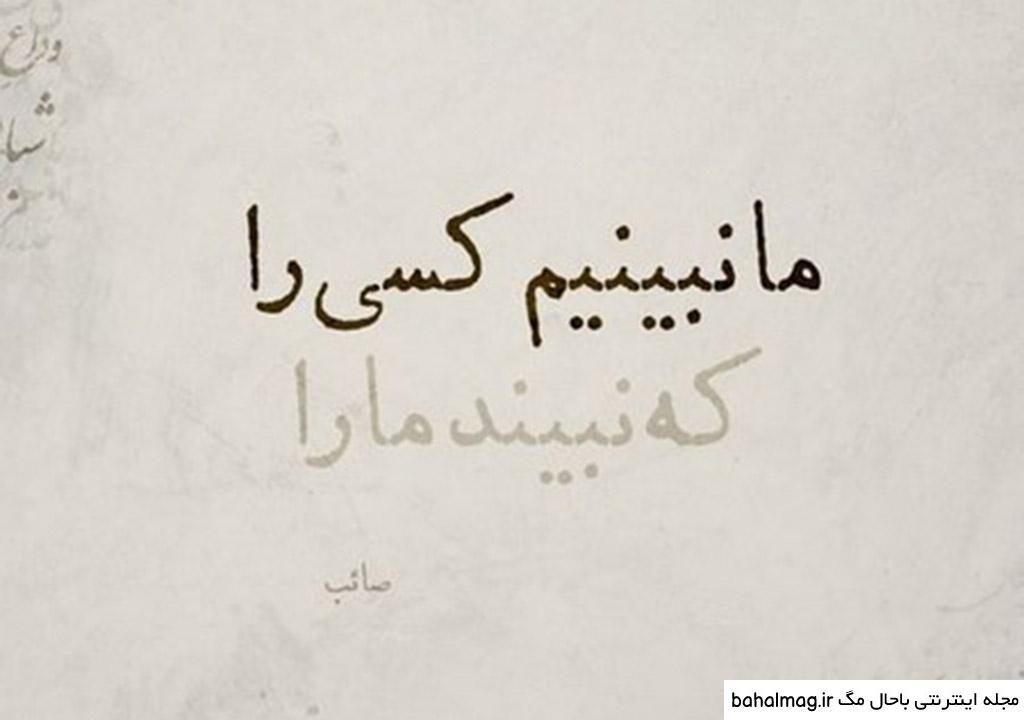 وداع
ما نبینیم کسی را
که نبیند ما را
صائب
مجله اینترنتی باحال مگ bahalmag.ir